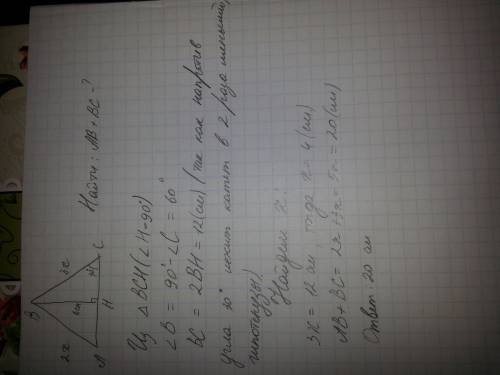 B
2x
6см
3x
30°
A
H
C
Найти: AB + BC - ?
Из △BCH (∠H=90°)
∠B = 90° - ∠C = 60°
BC = 2BH = 12(см) (так как напротив
угла 30° лежит катет в 2 раза меньший
гипотенузы).
Найдем x:
3x = 12 см тогда x = 4(см)
AB + BC = 2x + 3x = 5x = 20(см)
Ответ: 20 см